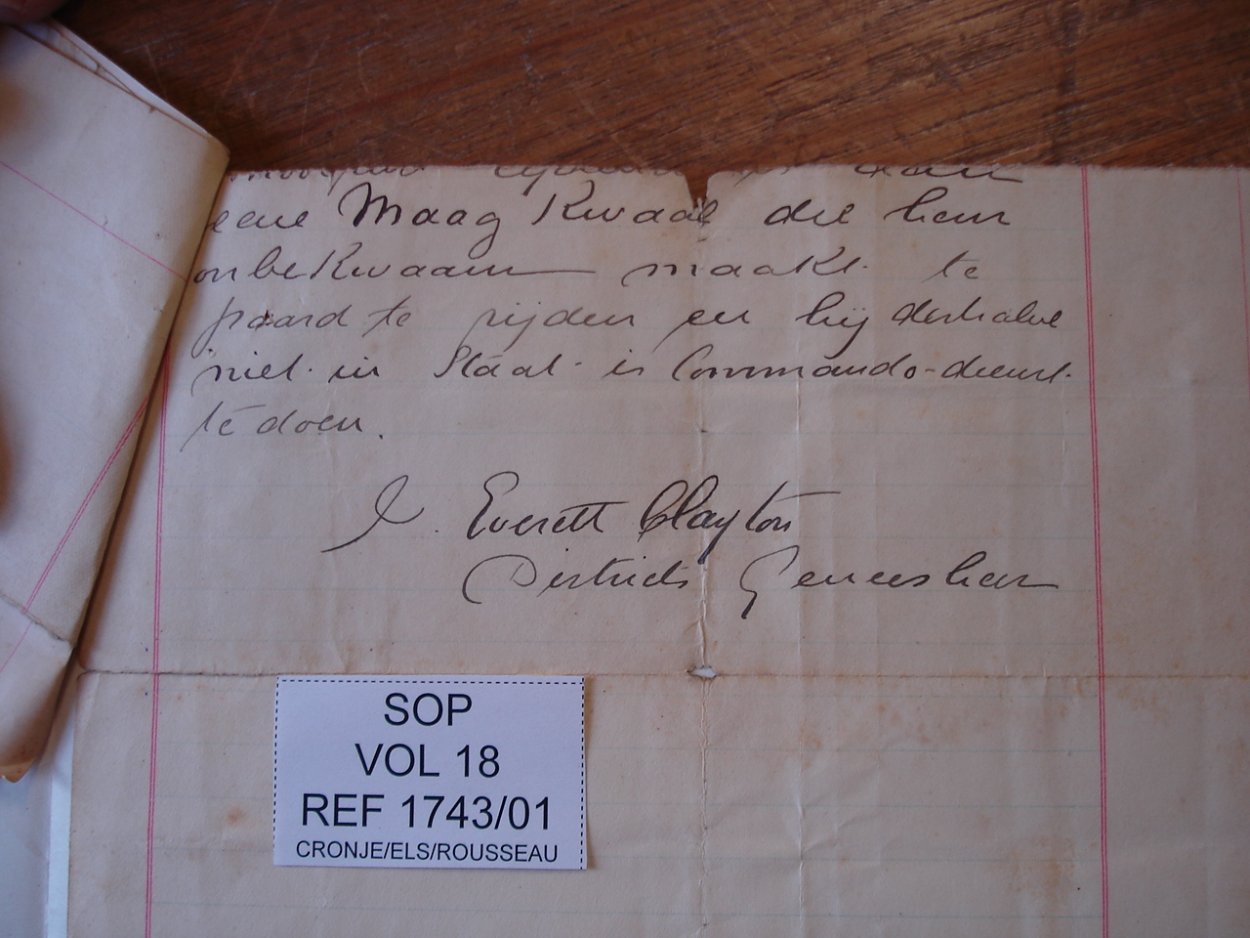 aan
eene Maag Kwaal die hem
onbekwaam maakt te
paard te rijden en hij derhalve
niet in Staat is Commando-dienst
te doen.
Everett Clayton
Districts Geneesheer
SOP
VOL 18
REF 1743/01
CRONJE/ELS/ROUSSEAU